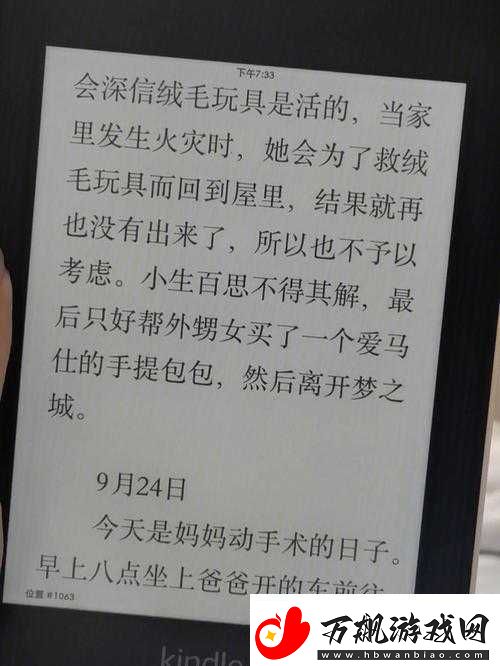 下午7:33
会深信绒毛玩具是活的，当家
里发生火灾时，她会为了救绒
毛玩具而回到屋里，结果就再
也没有出来了，所以也不予以
考虑。小生百思不得其解，最
后只好帮外甥女买了一个爱马
仕的手提包包，然后离开梦之
城。
9月24日
今天是妈妈动手术的日子。
早上八点坐上爸爸开的车前往
位置 #1063
kindle
万飙游戏网
hbwanbiao.com